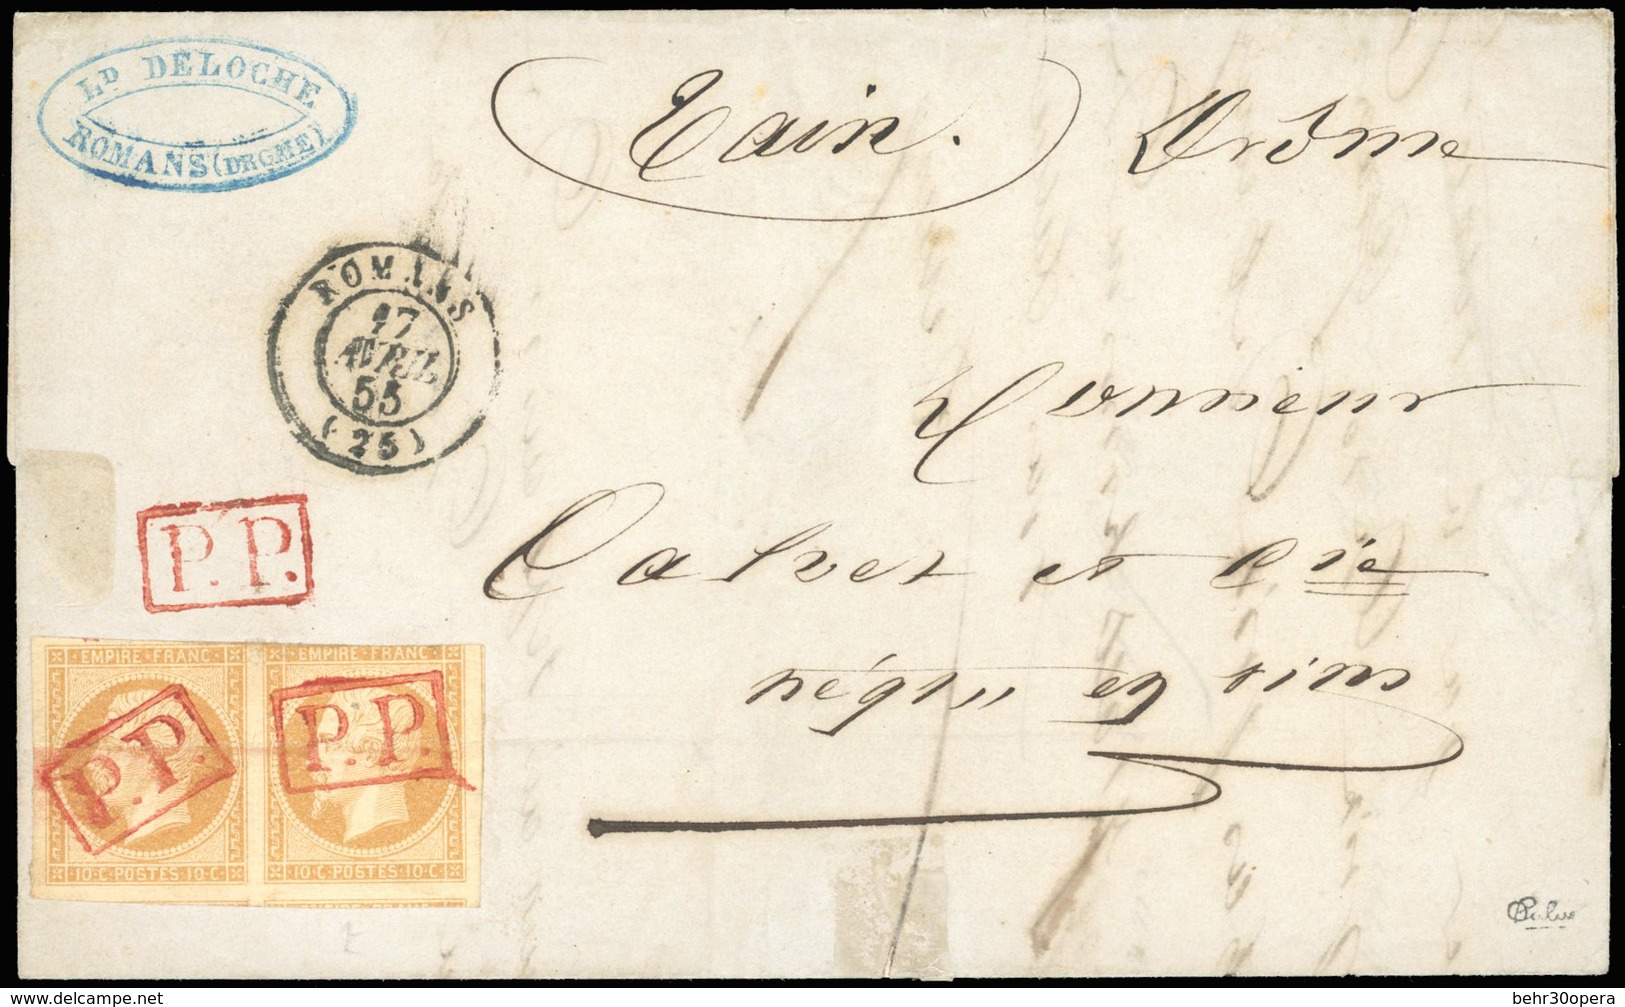 LD DELOCHE
ROMANS (DROME)
Tain. Drôme
ROMANS
17
AVRIL
55
(25)
Monsieur
P.P.
Calvet et Cie
négts en vins
EMPIRE FRANC EMPIRE FRANC
P.P. P.P.
10·C·POSTES·10·C· 10·C·POSTES·10·C·
www.delcampe.net
behr30opera